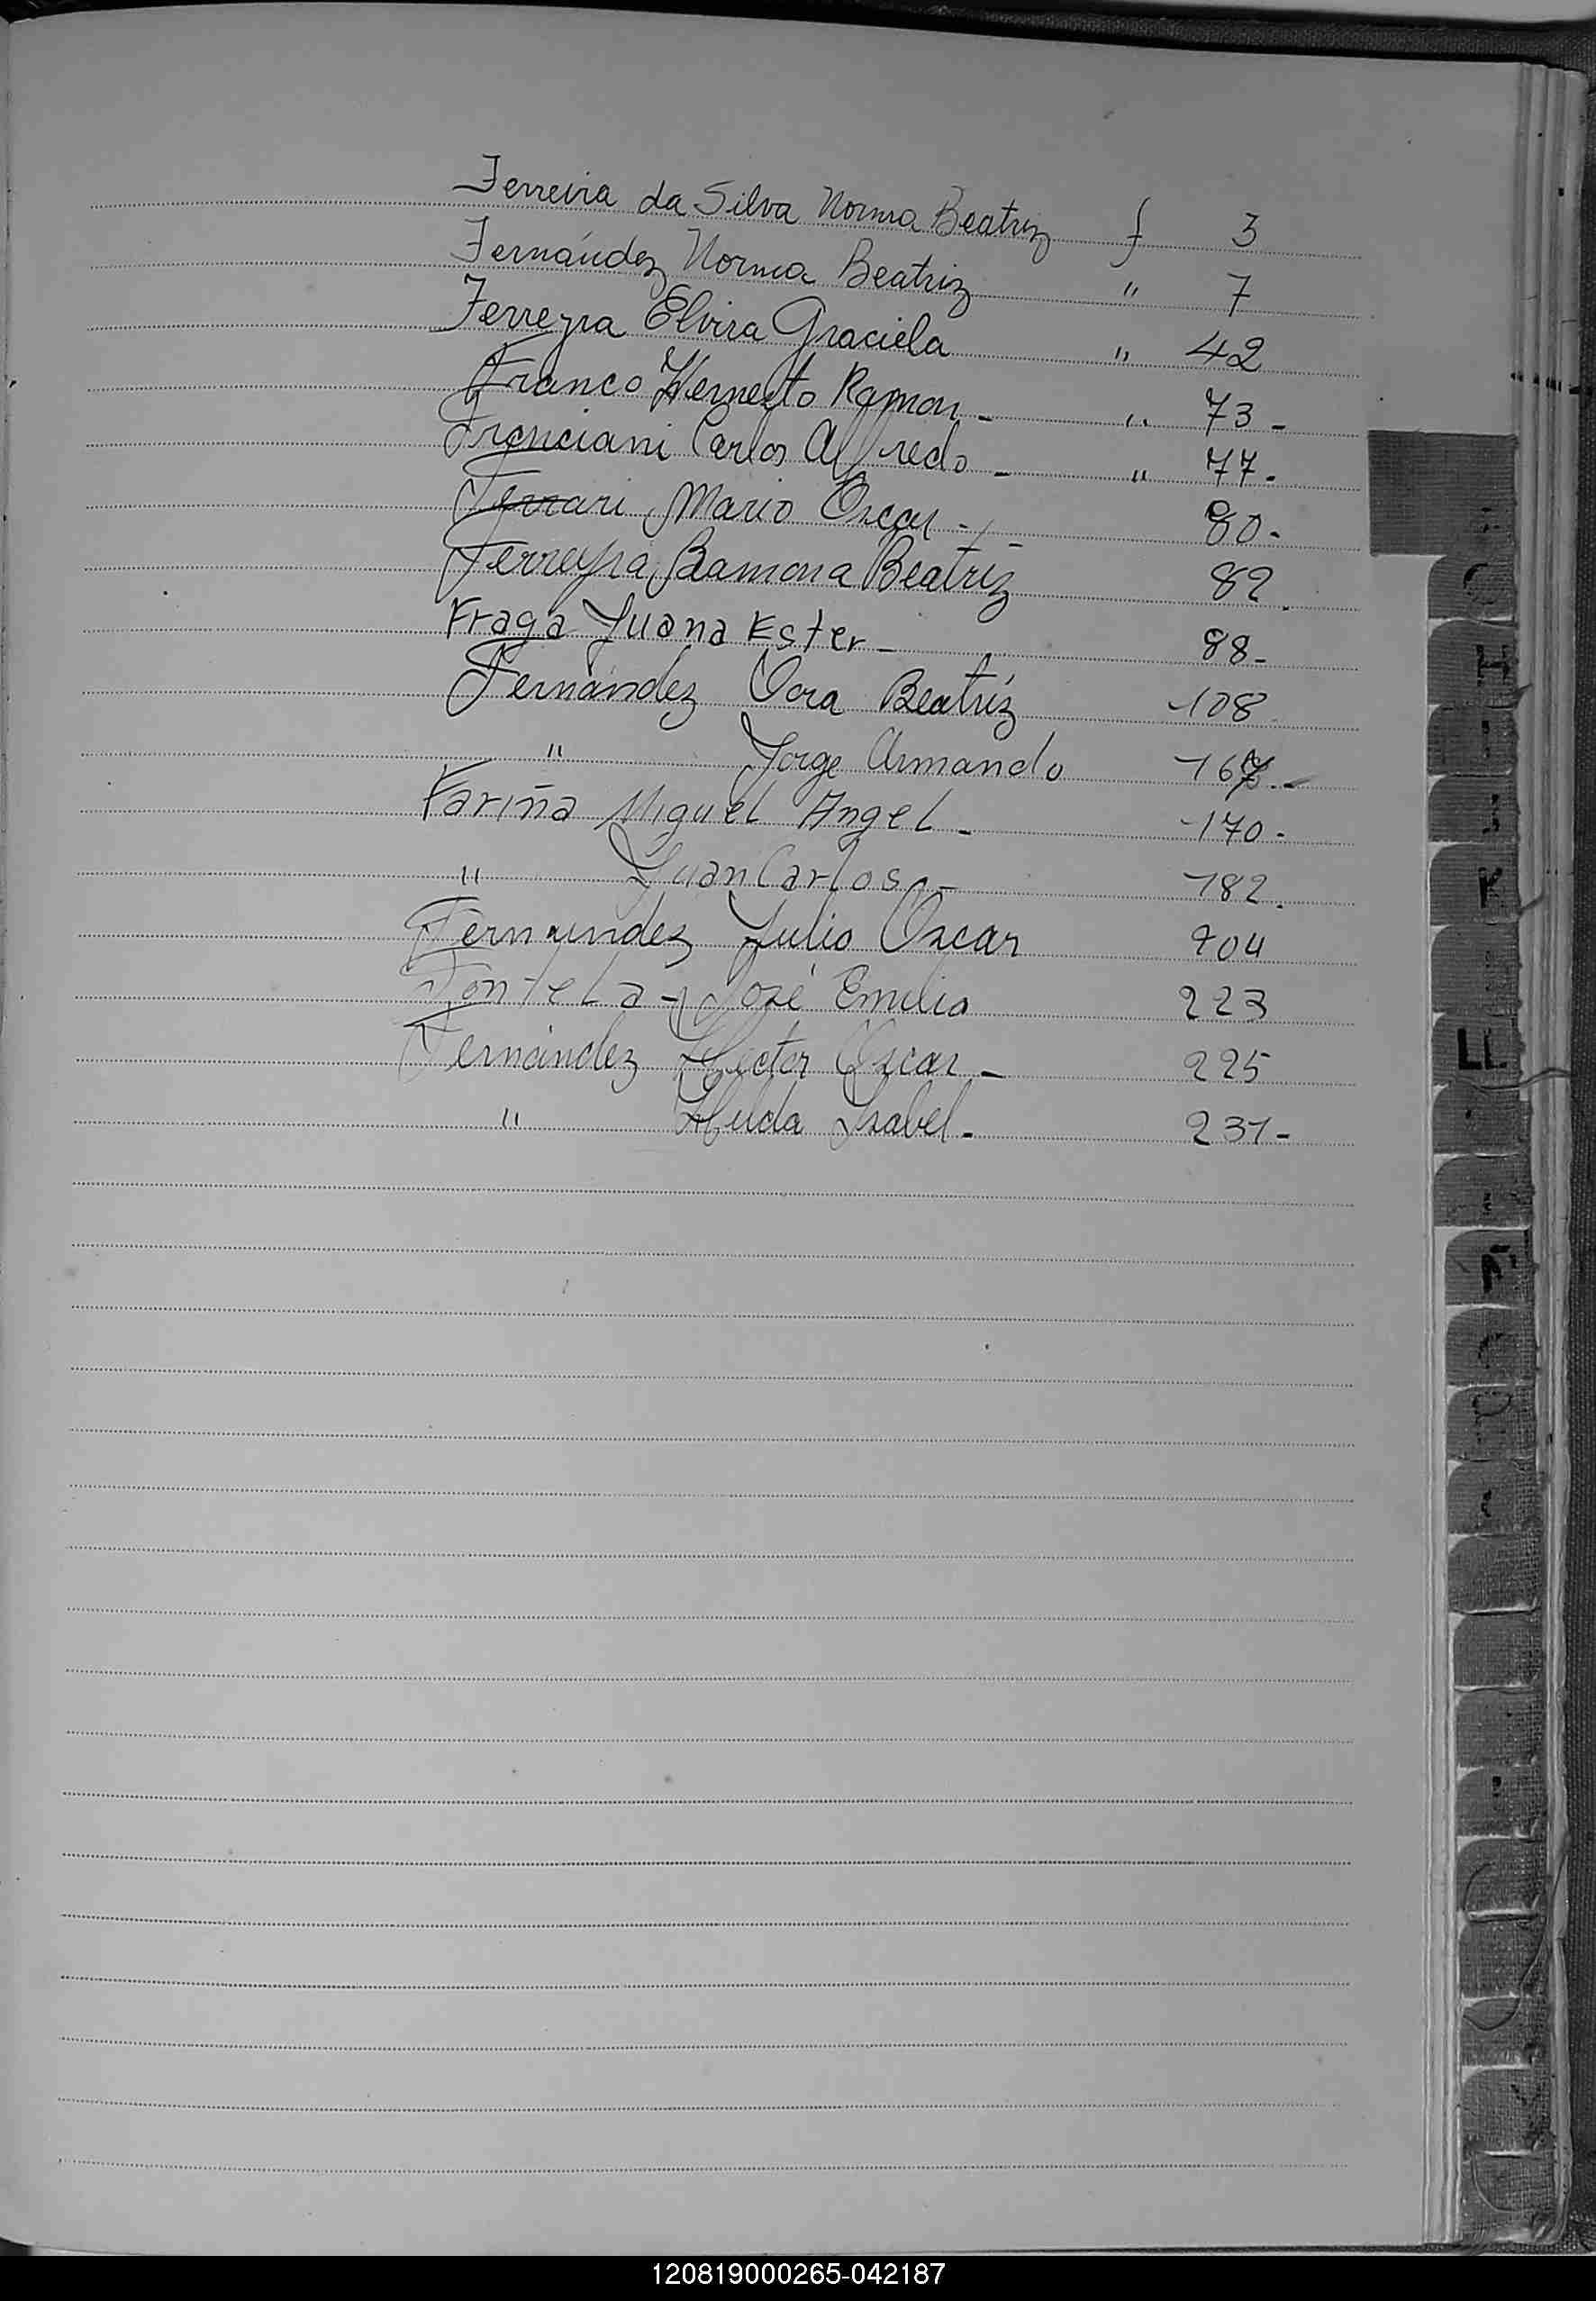 Ferreira da Silva Norma Beatriz f 3
Fernández Norma Beatriz " 7
Ferreyra Elvira Graciela " 42
Franco Hernesto Ramon - " 73 -
Franciani Carlos Alfredo - " 77 -
Ferrari Mario Oscar - 80 -
Ferreyra Ramona Beatríz 82.
Fraga Juana Ester - 88 -
Fernández Beatríz 108
" Jorge Armando 167.-
Fariña Miguel Angel - 170 -
" Juan Carlos.- 182.
Fernandez Julio Oscar 204
Fontela - José Emilio 223
Fernández Hector Oscar - 225
" Hilda Isabel - 231 -
LL
120819000265-042187